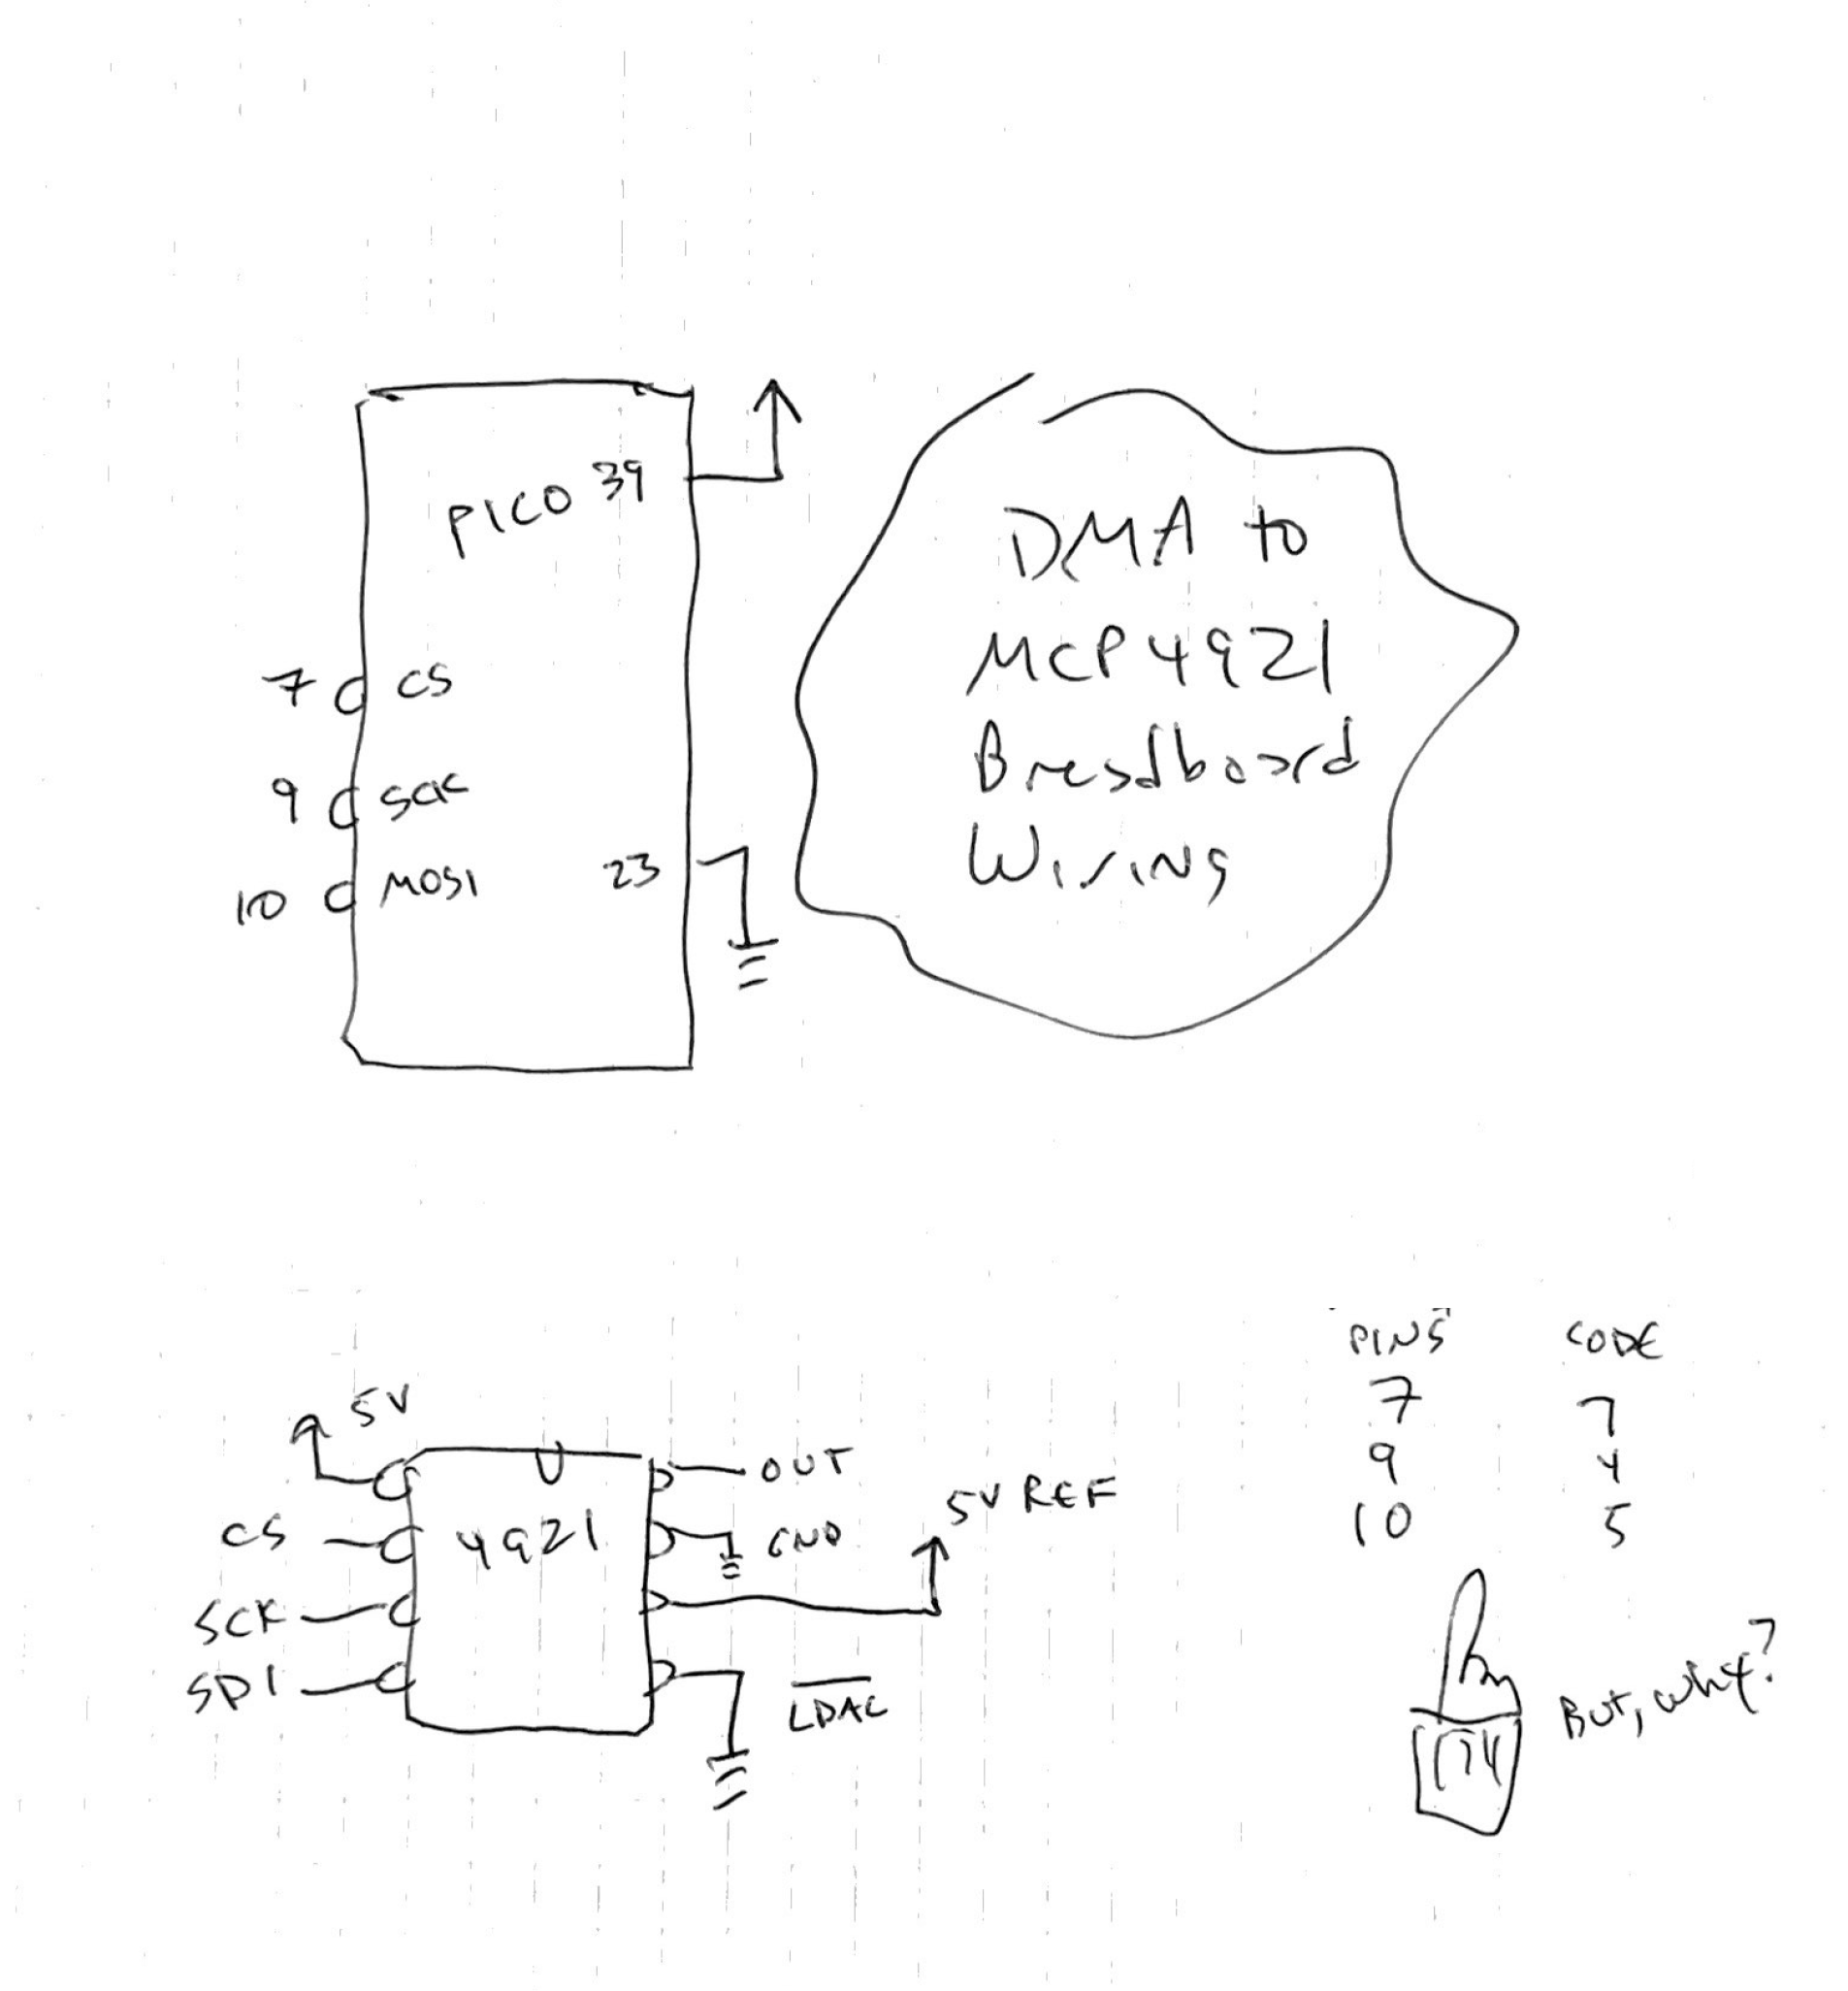 PICO 39
7 CS
9 SCK
10 MOSI 23
DMA to
MCP4921
Breadboard
Wiring
5V
OUT
CS 4921 GND
5V REF
SCK
SDI
LDAC
PINS CODE
7 7
9 4
10 5
But, why?